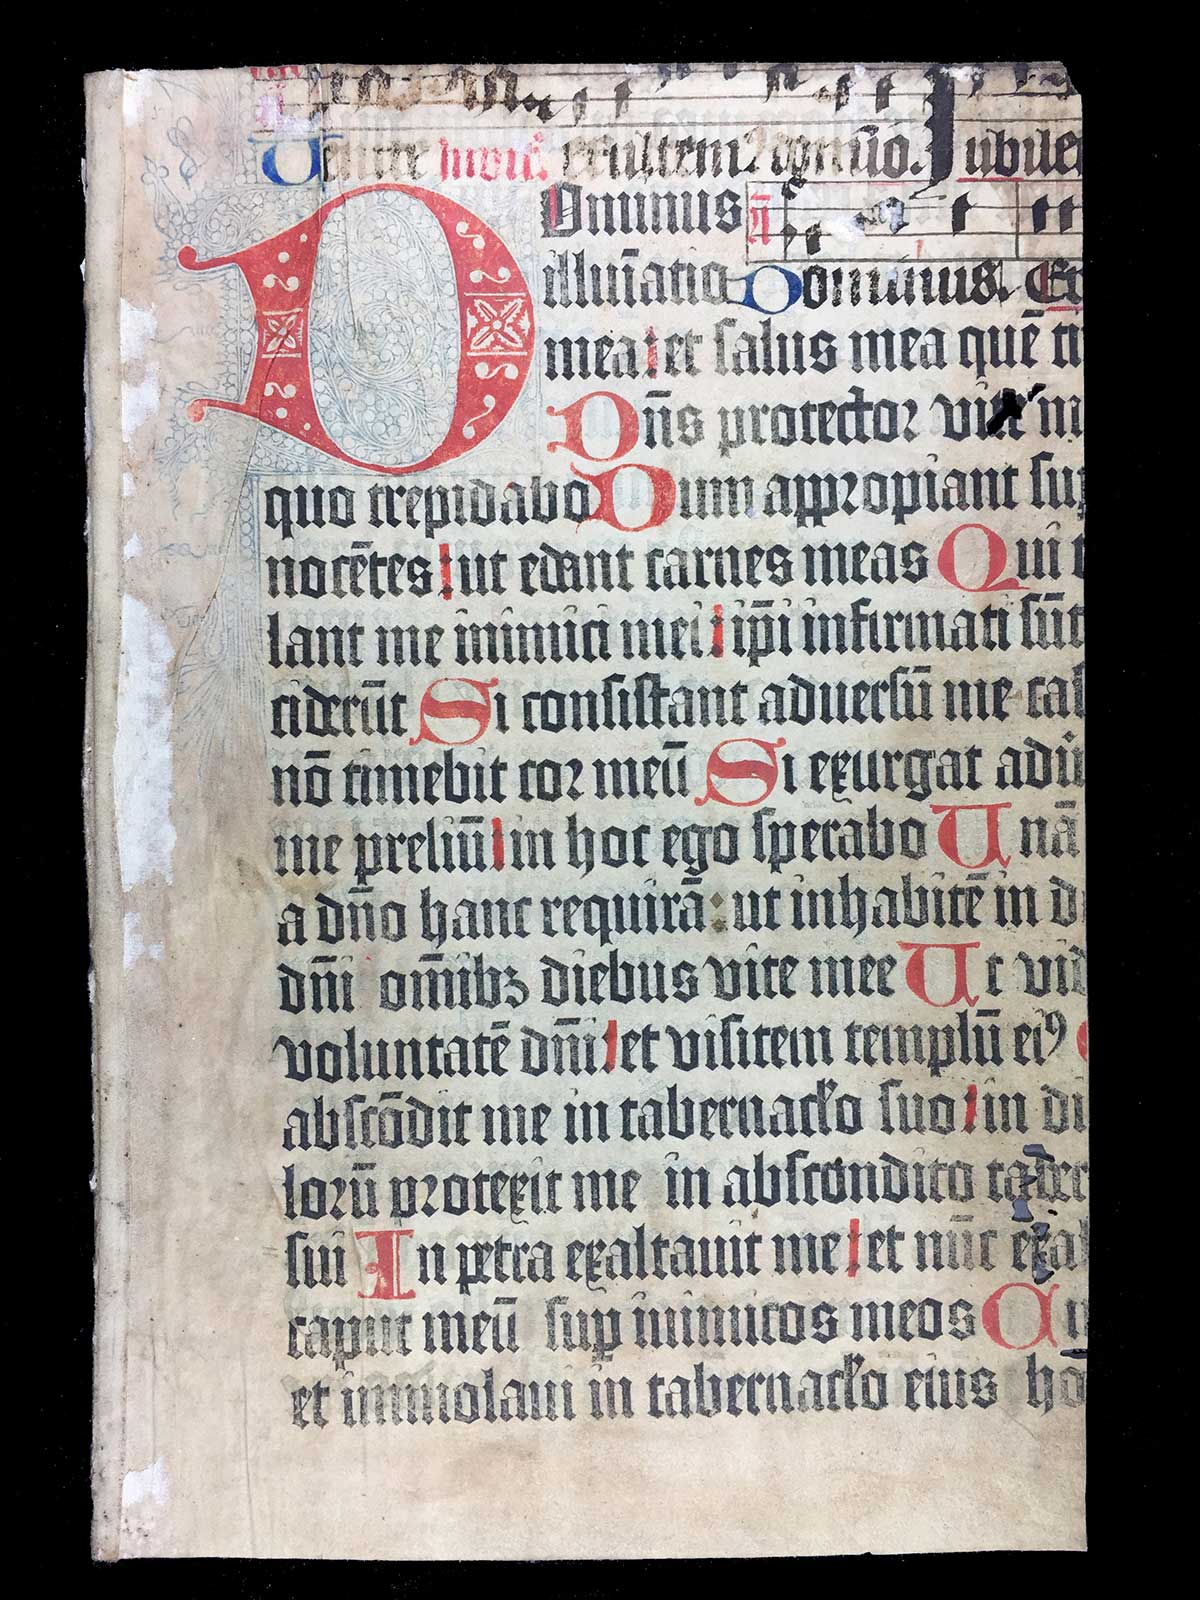 Uenite Inuit. exultem⁹ domino. Jubile
Ominus
illuīatio Dominus. Et
mea et salus mea quē ti
Dn̄s protector vite m
quo trepidabo Dum appropiant sup
nocētes ut edant carnes meas Qui t
lant me inimici mei ip̄i infirmati sūt
ciderūt Si consistant aduersū me cas
nō timebit cor meū Si exurgat adū
me preliū in hoc ego sperabo Unā
a dn̄o hanc requirā: ut inhabitē in d
dn̄i om̄ibꝫ diebus vite mee Ut vid
voluntatē dn̄i et visitem templū ei⁹
abscōdit me in tabernacl̄o suo in di
lorū protexit me in abscondito taber
sui In petra exaltauit me et nūc exal
caput meū suꝑ inimicos meos
et immolaui in tabernacl̄o eius ho